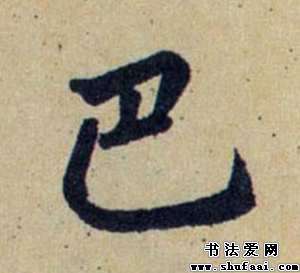 巴
书法爱网
www.shufaai.com